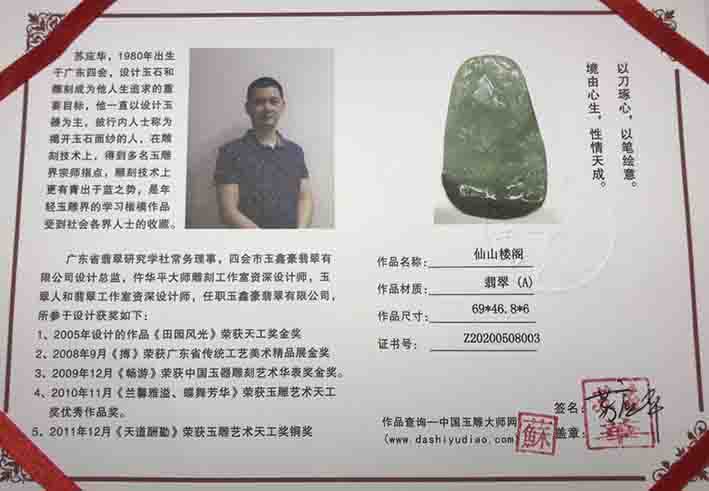 苏应华，1980年出生
于广东四会，设计玉石和
雕刻成为他人生追求的重
要目标，他一直以设计玉
器为主，被行内人士称为
揭开玉石面纱的人，在雕
刻技术上，得到多名玉雕
界宗师指点，雕刻技术上
更有青出于蓝之势，是年
轻玉雕界的学习楷模作品
受到社会各界人士的收藏。
广东省翡翠研究学社常务理事，四会市玉鑫豪翡翠有
限公司设计总监，仵华平大师雕刻工作室资深设计师，玉
翠人和翡翠工作室资深设计师，任职玉鑫豪翡翠有限公司，
所参于设计获奖如下：
1、2005年设计的作品《田园风光》荣获天工奖金奖
2、2008年9月《搏》荣获广东省传统工艺美术精品展金奖
3、2009年12月《畅游》荣获中国玉器雕刻艺术华表奖金奖。
4、2010年11月《兰馨雅溢、蝶舞芳华》荣获玉雕艺术天工
奖优秀作品奖。
5、2011年12月《天道酬勤》荣获玉雕艺术天工奖铜奖
以刀琢心，以笔绘意。
境由心生，性情天成。
作品名称：仙山楼阁
作品材质：翡翠（A）
作品尺寸：69*46.8*6
证书号：Z20200508003
签名：苏应华
盖章：
作品查询—中国玉雕大师网
（www.dashiyudiao.com）
蘇